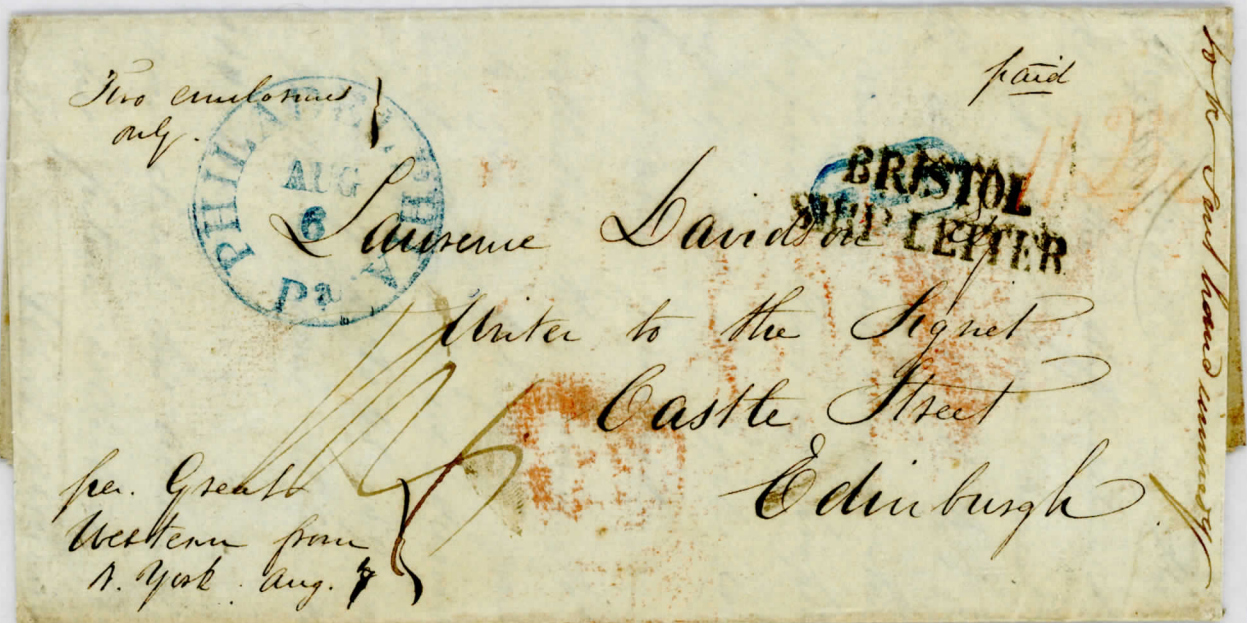 Two enclosures
only.
paid
PHILADELPHIA
AUG
6
Pa
BRISTOL
SHIP LETTER
Laurence Davidson Esq
Writer to the Signet
Castle Street
Edinburgh
per. Great
Western from
N. York. Aug. 7
to be